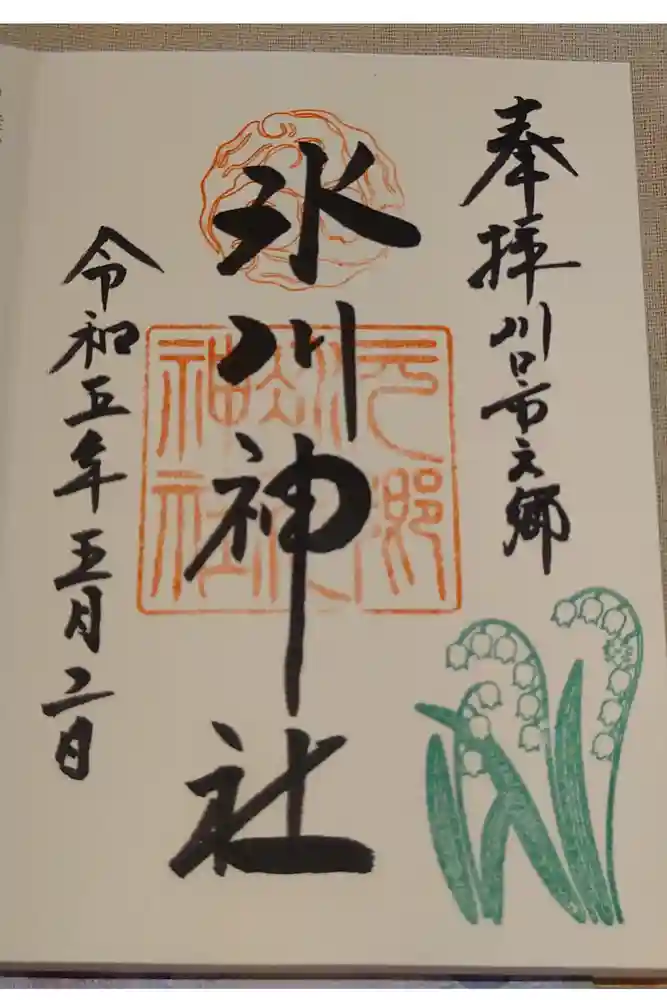 奉拝
川口市元郷
氷川神社
元郷
氷川
神社
令和五年五月二日